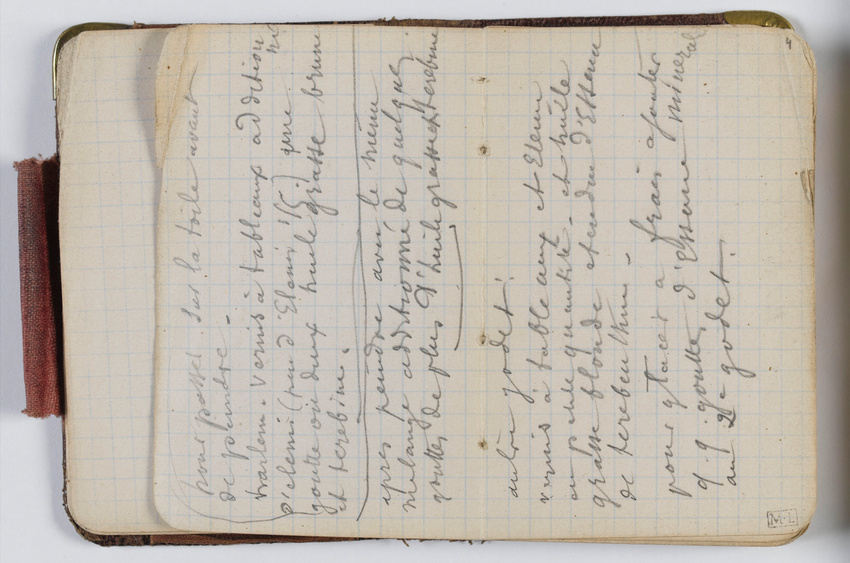 pour passer sur la toile avant
de peindre -
harlem. vernis à tableaux addition né
d'elemi (rund Elemi 1/5.) qune
goutte ou deux huile grasse brune
et terebine.
apres peindre avec le même
mélange additionné de quelques
gouttes de plus d'huile grasse et terebine
autre godet.
vernis à tableaux et Elemi
en petite quantité - et huile
grasse blonde etendue d'Essence
de terebenthine -
pour glacer a frais ajouter
q.q. gouttes d'Essence mineral
au 2e godet.
4
M.L